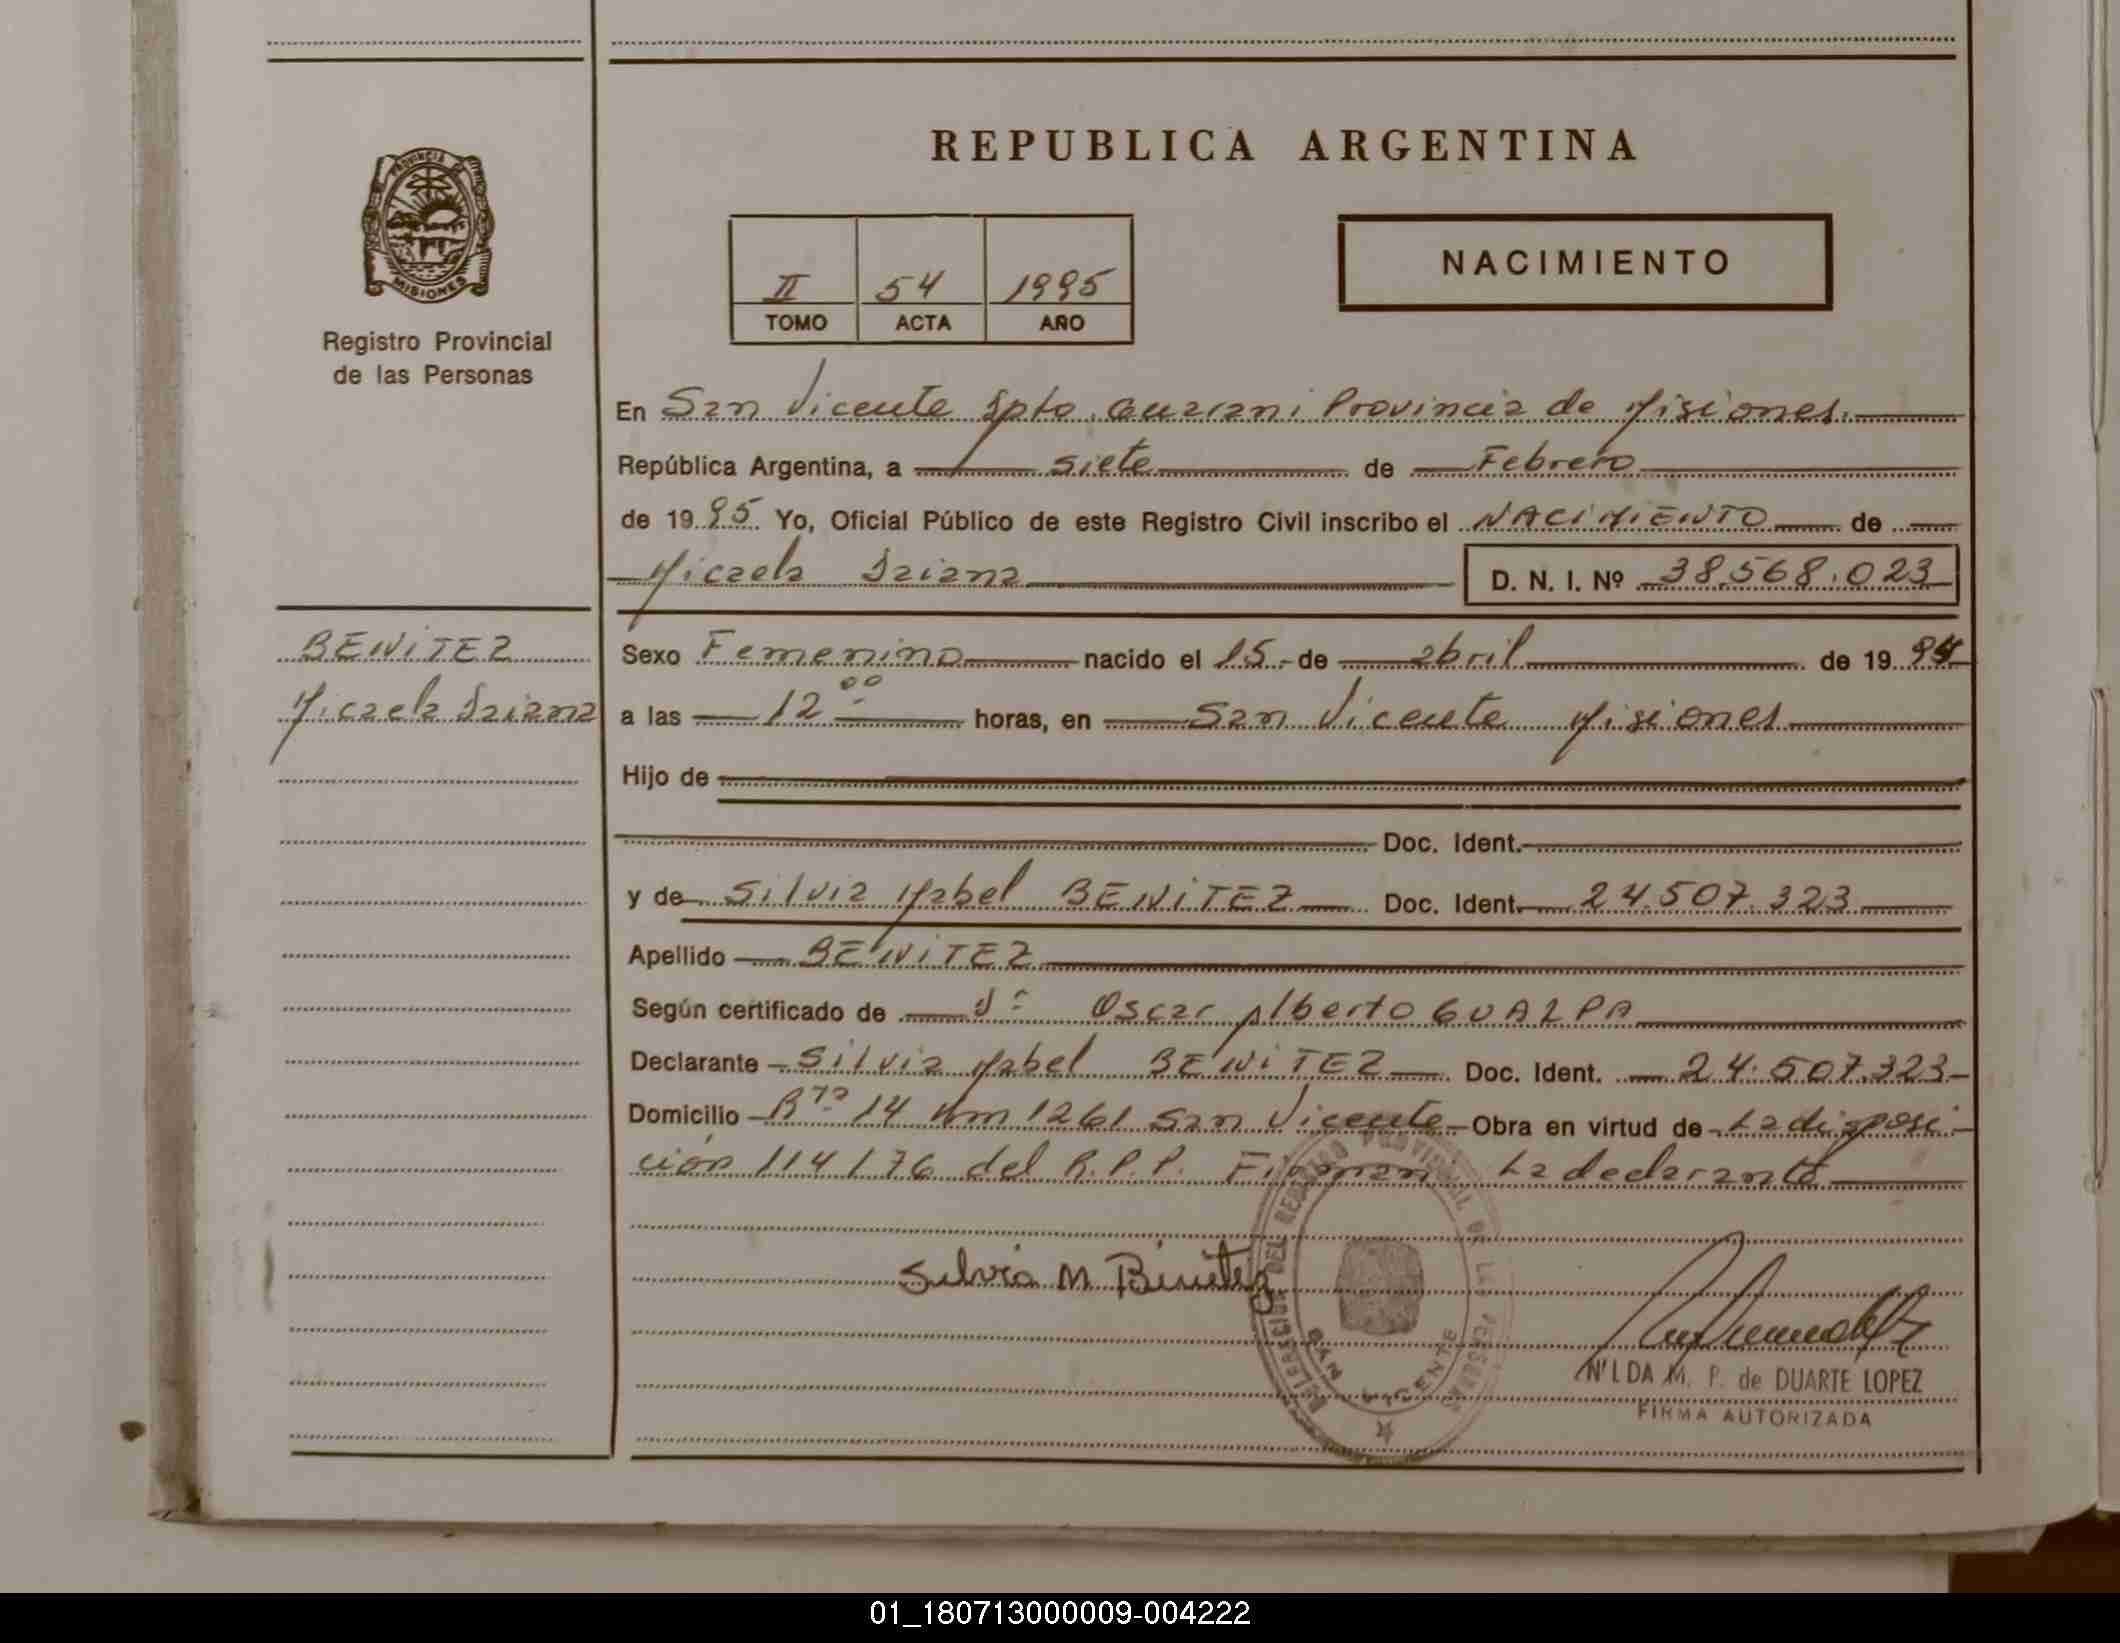 REPUBLICA ARGENTINA
PROVINCIA
MISIONES
Registro Provincial
de las Personas
II 54 1995
TOMO ACTA AÑO
NACIMIENTO
En San Vicente Dpto. Guarani Provincia de Misiones.
República Argentina, a siete de Febrero
de 1995. Yo, Oficial Público de este Registro Civil inscribo el NACIMIENTO de
Micaela Daiana D. N. I. Nº 38.568.023
BENITEZ
Micaela Daiana
Sexo Femenino nacido el 15 de abril de 1994
a las 12 00 horas, en San Vicente Misiones
Hijo de
Doc. Ident.
y de Silvia Mabel BENITEZ Doc. Ident. 24.507.323
Apellido BENITEZ
Según certificado de Oscar Alberto GUALPA
Declarante Silvia Mabel BENITEZ Doc. Ident. 24.507.323
Domicilio Rta 14 Km 1261 San Vicente Obra en virtud de La disposi-
ción 114/76 del R.P.P. Firman: La declarante
Silvia M Binitez
DELEGACION DEL REGISTRO PROVINCIAL DE LAS PERSONAS
SAN VICENTE
NILDA M. P. de DUARTE LOPEZ
FIRMA AUTORIZADA
01_180713000009-004222